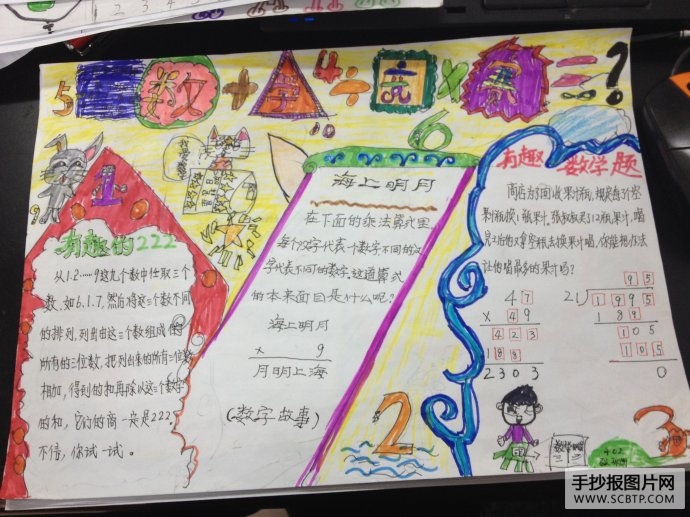 5 数 + 学 4 ÷ 竞 × 赛 = ?
10
6
1
有趣的222
从1.2……9这九个数中任取三个
数,如6.1.7,然后将这三个数不同
的排列,列出由这三个数组成的
所有的三位数,把列出来的所有三位数
相加,得到的和再除以这三个数字
的和,它们的商一定是222
不信,你试一试。
海上明月
在下面的乘法算式里
每个汉字代表一个数字不同的汉
字代表不同的数字。这道算式
的本来面目是什么呢?
海上明月
× 9
月明上海
(数字故事)
2
有趣 数学题
商店为了回收果汁瓶,规定每3个空
果汁瓶换1瓶果汁。张叔叔买了12瓶果汁,喝
完之后又拿空瓶去换果汁喝,你能想办法
让他喝最多的果汁吗?
4 7
× 4 9
4 2 3
1 8 8
2 3 0 3
9 5
21 1 9 9 5
1 8 9
1 0 5
1 0 5
0
3
402
手抄报图片网
WWW.SCBTP.COM